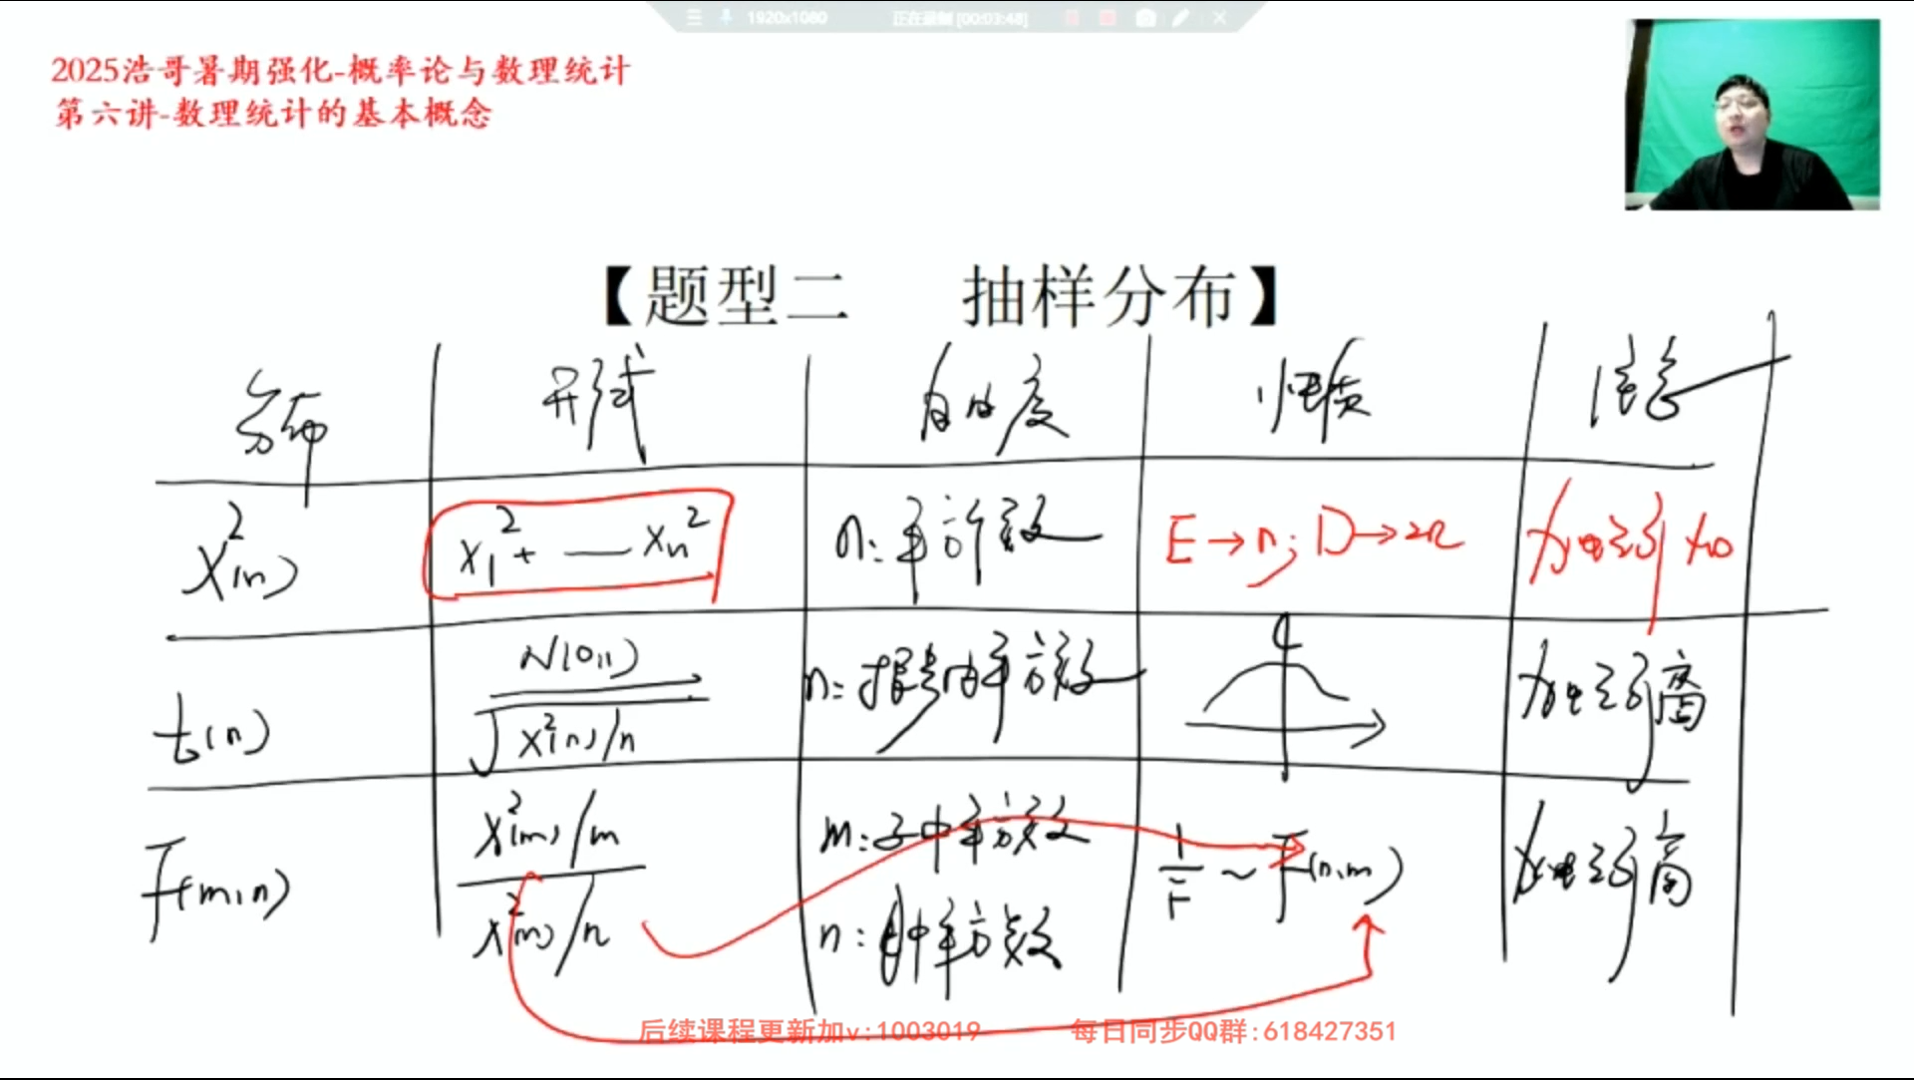 1920x1080 正在录制 [00:03:48]
2025浩哥暑期强化-概率论与数理统计
第六讲-数理统计的基本概念
【题型二 抽样分布】
分布 形式 自由度 性质 信号
X²(n) X₁²+ — Xn² n: 平方个数 E→n; D→2n
t(n) N(0,1) / √X²(n)/n n: 根号内平方数
F(m,n) X²(m)/m / X²(n)/n m: 子中平方数 1/F ~ F(n,m)
n: 中平方数
后续课程更新加v:1003019 每日同步QQ群:618427351